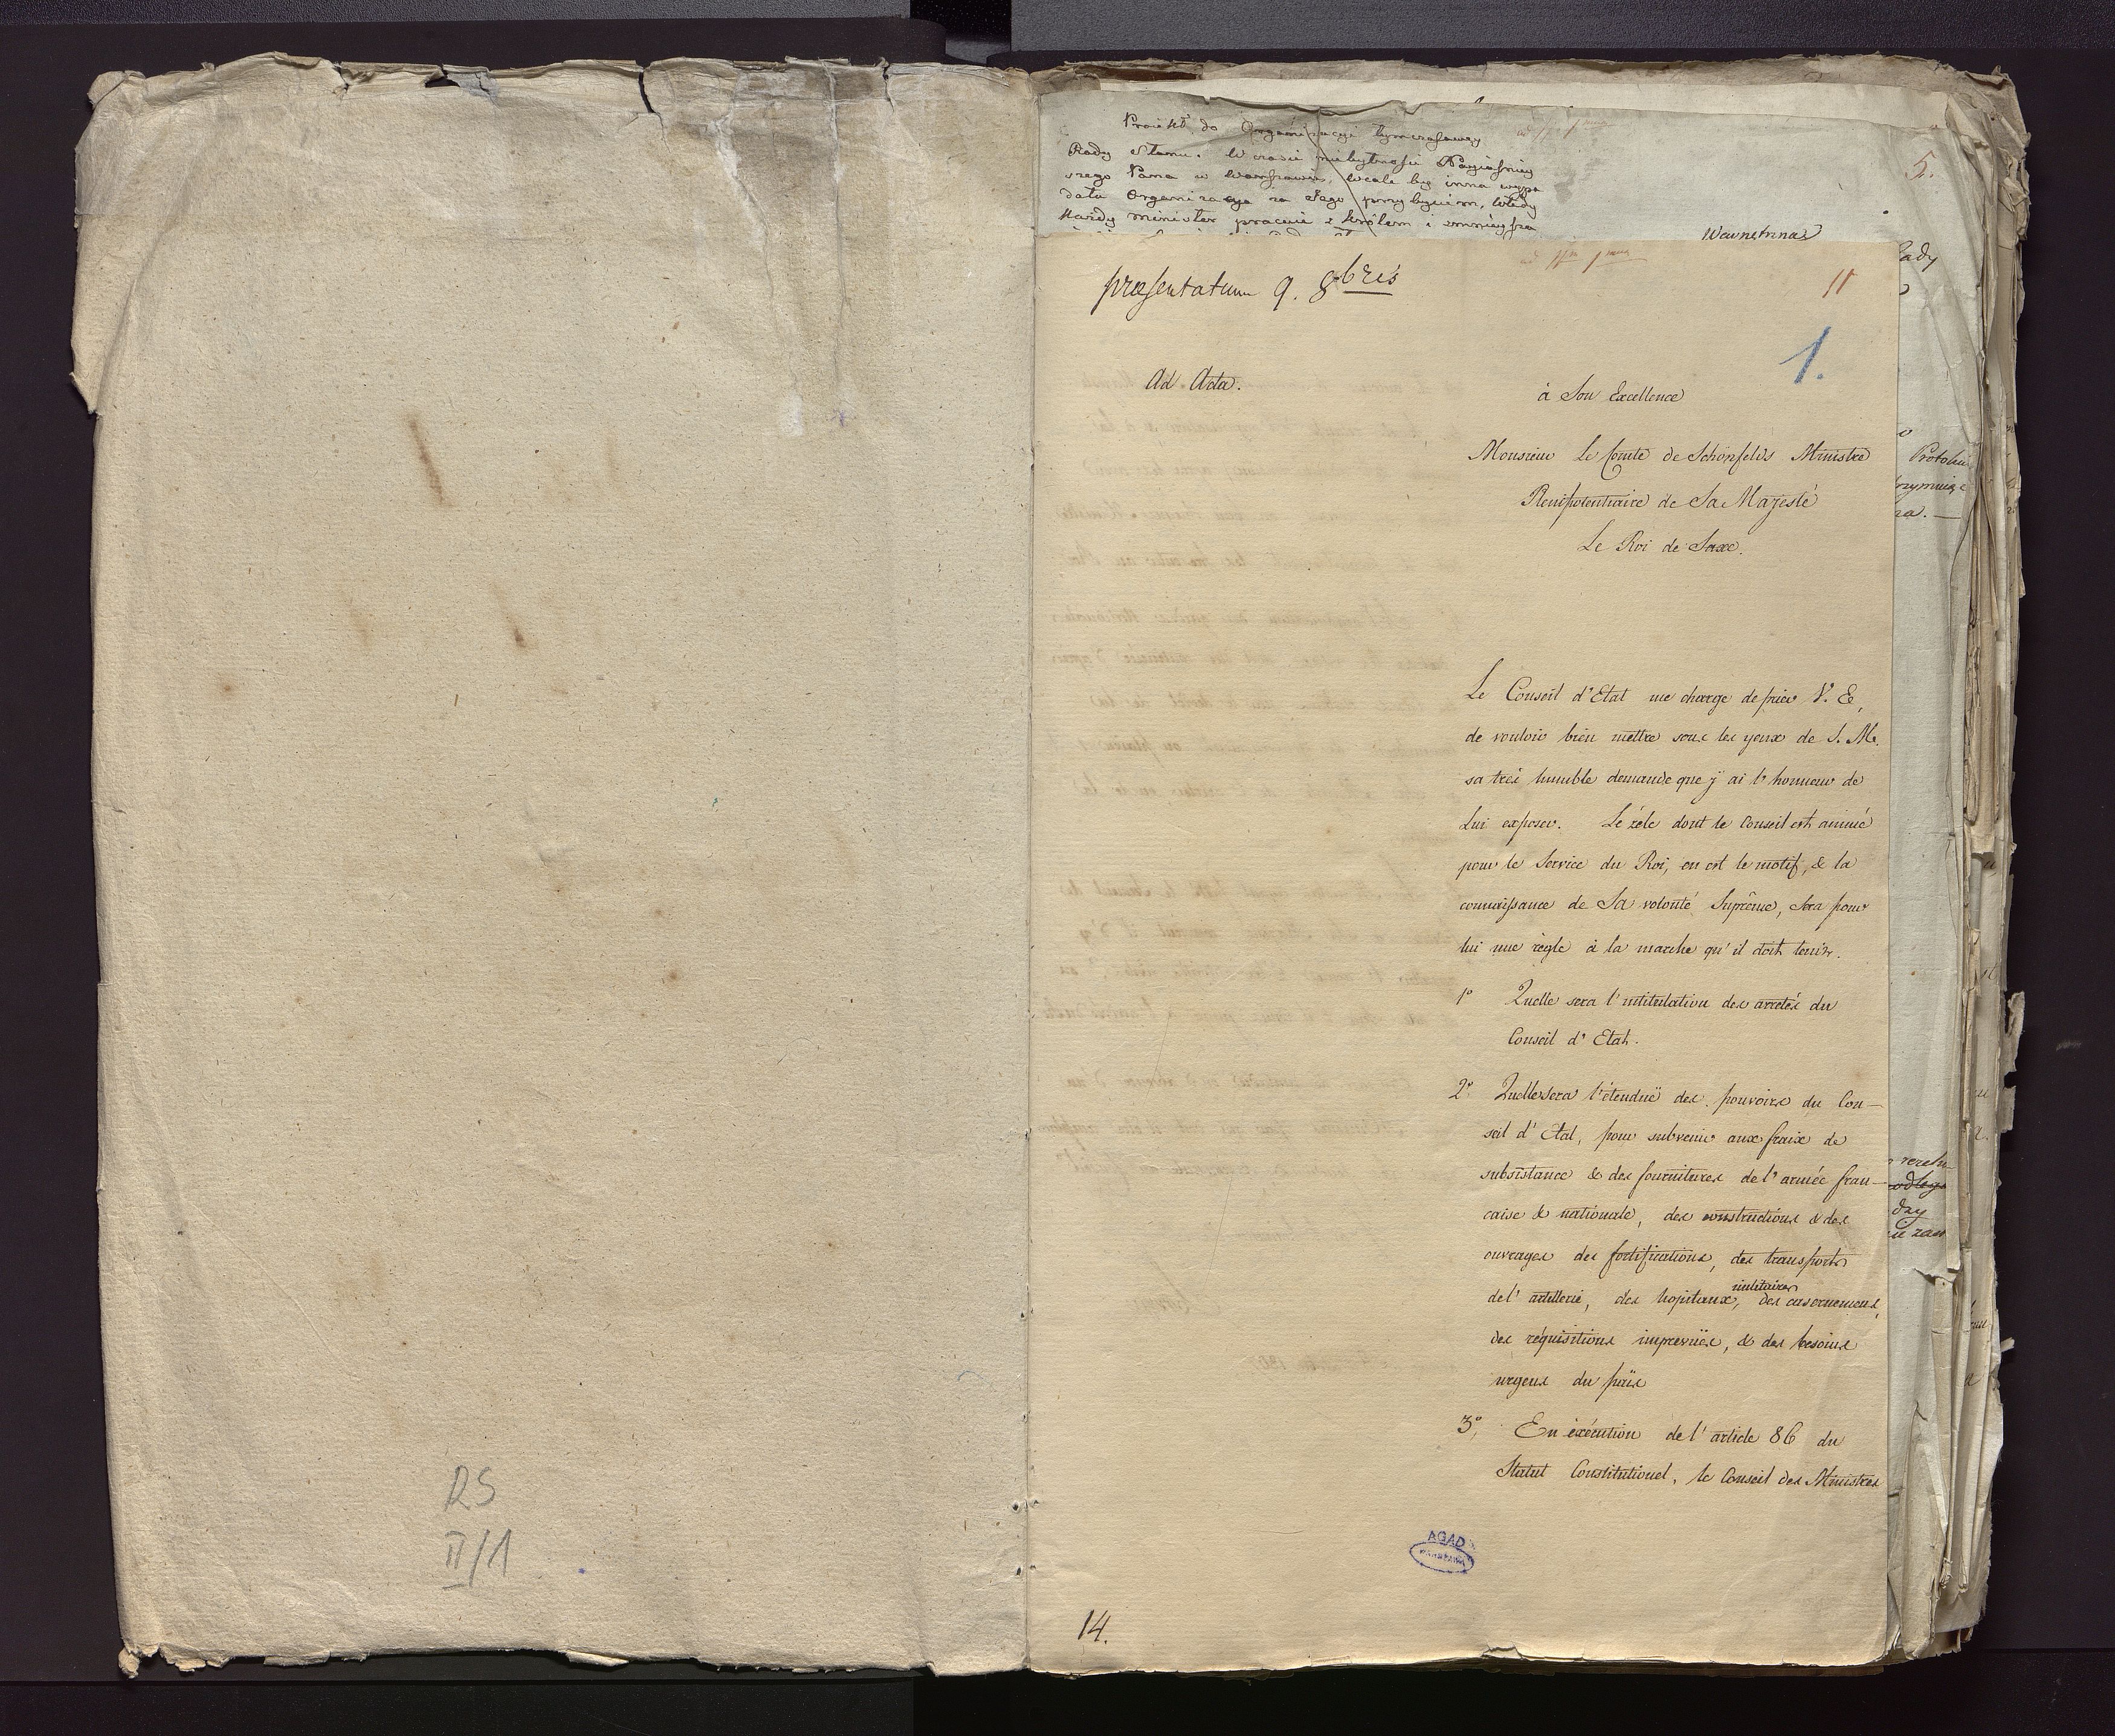 RS
II/1
Proiekt do Organizacyi tymczasowey
Rady Stanu. W czasie niebytności Nayiaśniey
szego Pana w Warszawie, wcale by inna wypa
dała Organizacya za Jego przybyciem, wtedy
Każdy minister pracuie z królem i zmnieysza
5.
Wewnetrzna
præsentatum 9. 8bris
ad Nrum 1mum
11
1.
Ad Acta.
à Son Excellence
Monsieur Le Comte de Schönfelds Ministre
Plenipotentiaire de Sa Majesté
Le Roi de Saxe.
Le Conseil d'Etat me charge de prier V. E,
de vouloir bien mettre sous les yeux de S. M.
sa très humble demande que j'ai l'honneur de
Lui exposer. Le zéle dont le Conseil est animé
pour le Service du Roi, en est le motif, & la
connaissance de Sa volonté Suprême, sera pour
lui une règle à la marche qu'il doit tenir.
1º Quelle sera l'intitulation des arretés du
Conseil d'Etat.
2º. Quelle sera l'étenduë des pouvoirs du Con—
seil d'Etat, pour subvenir aux fraix de
subsistance & des fournitures de l'armée fran—
caise & nationale, des constructions & des
ouvrages des fortifications, des transports
militaires
de l'artillerie, des hopitaux, des casernemens,
des réquisitions imprevües, & des besoins
urgens du païs
3º. En éxécution de l'article 86 du
Statut Constitutionel, le Conseil des Ministres
AGAD
WARSZAWA
14.
ady
Protoku
rzymuią
ra. —
odlega
dzy